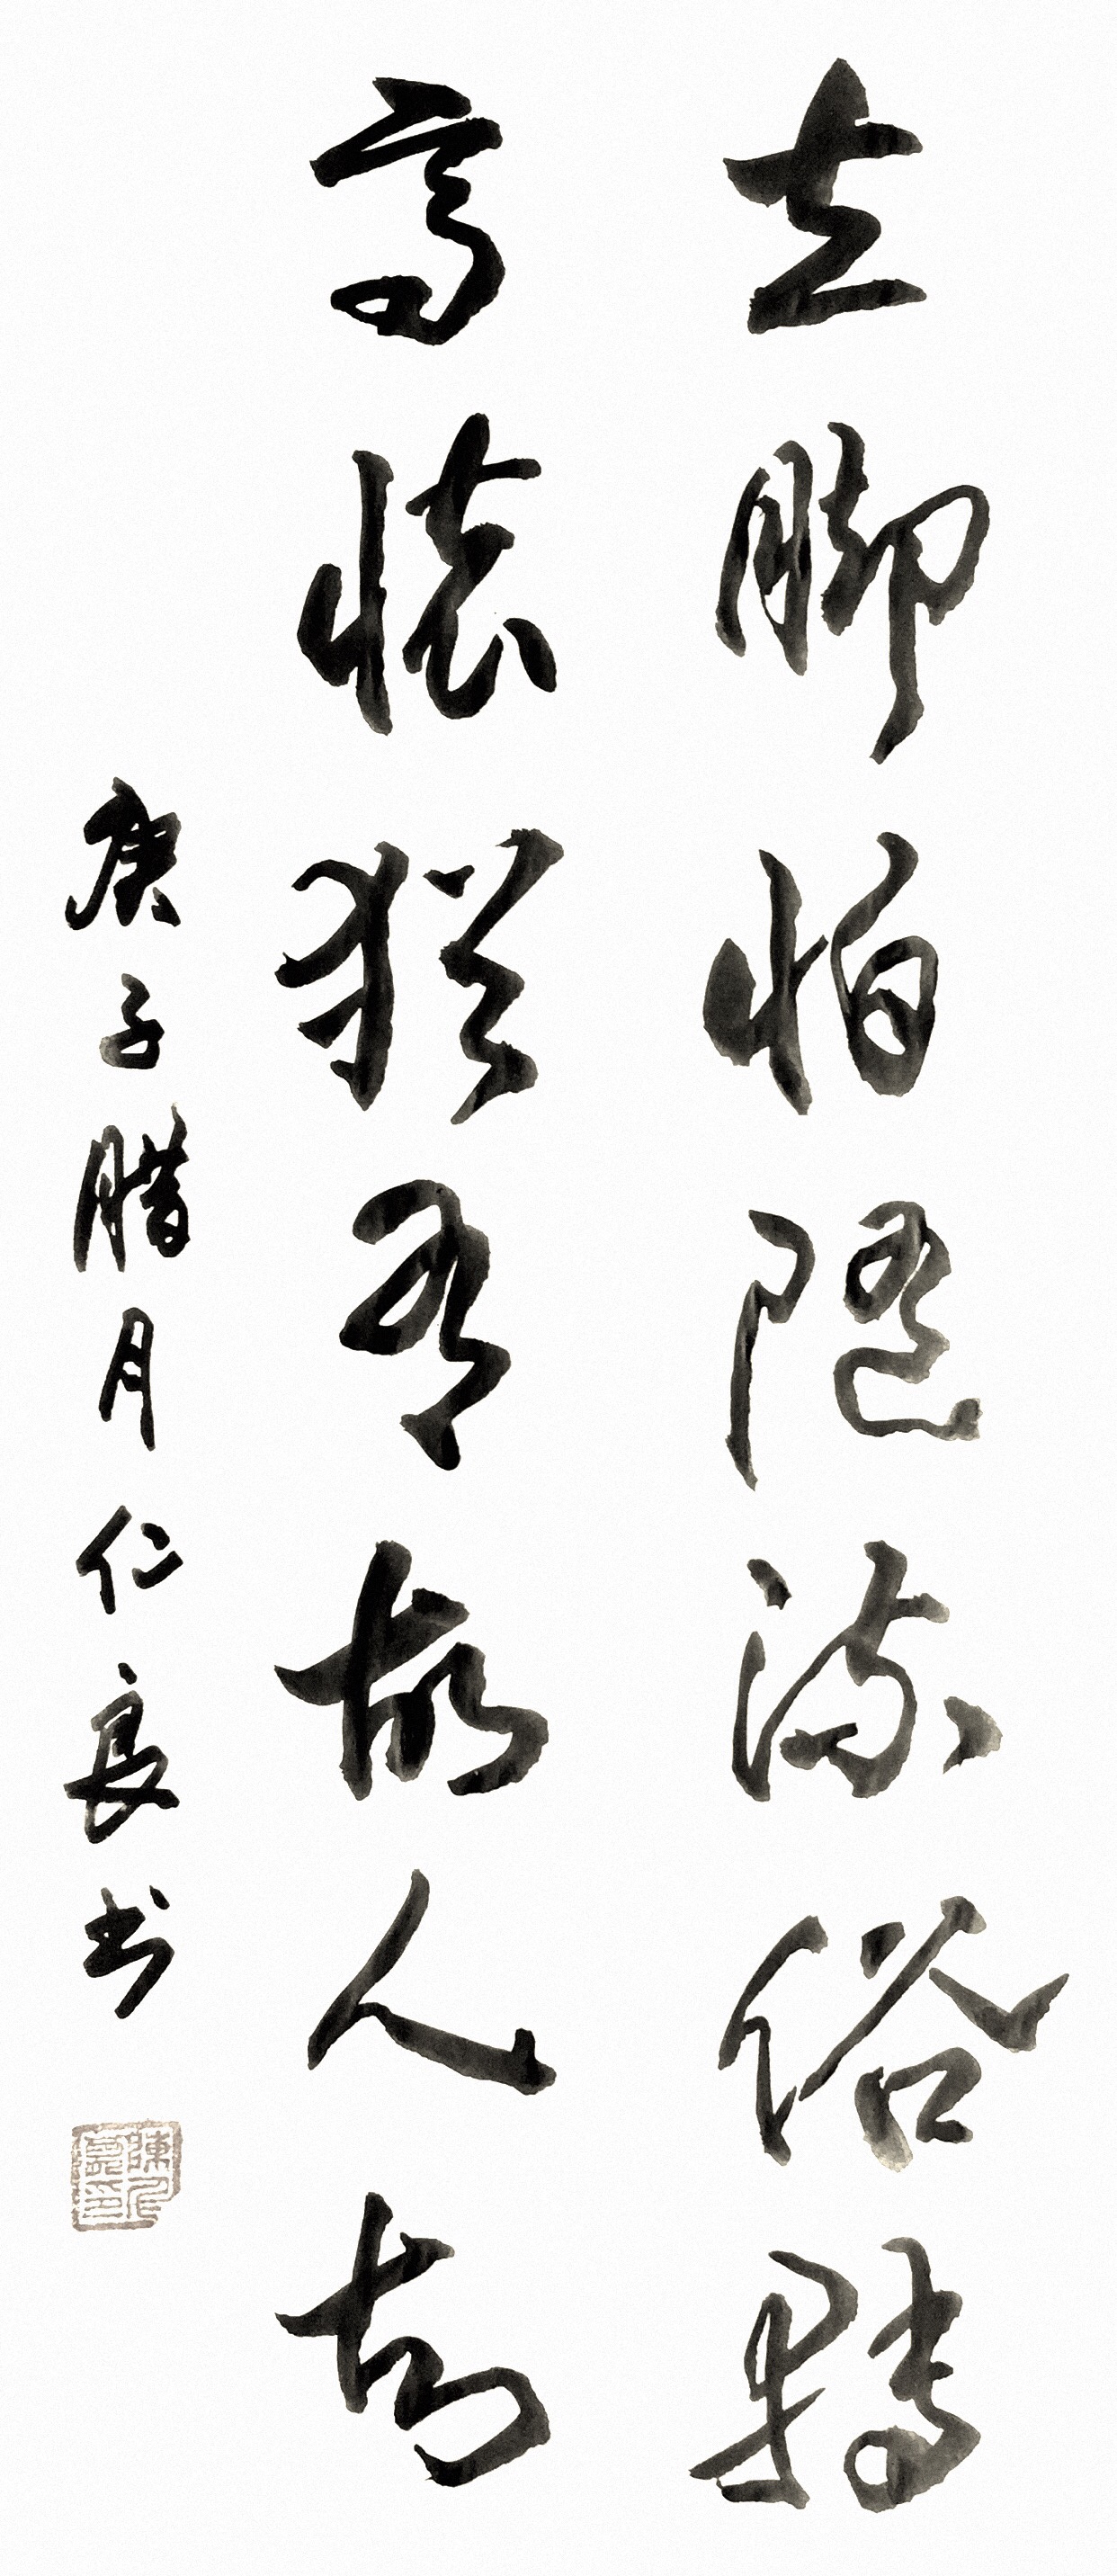 立脚怕隨流俗轉
高懷猶有故人知
庚子腊月仁良书
陳仁良印